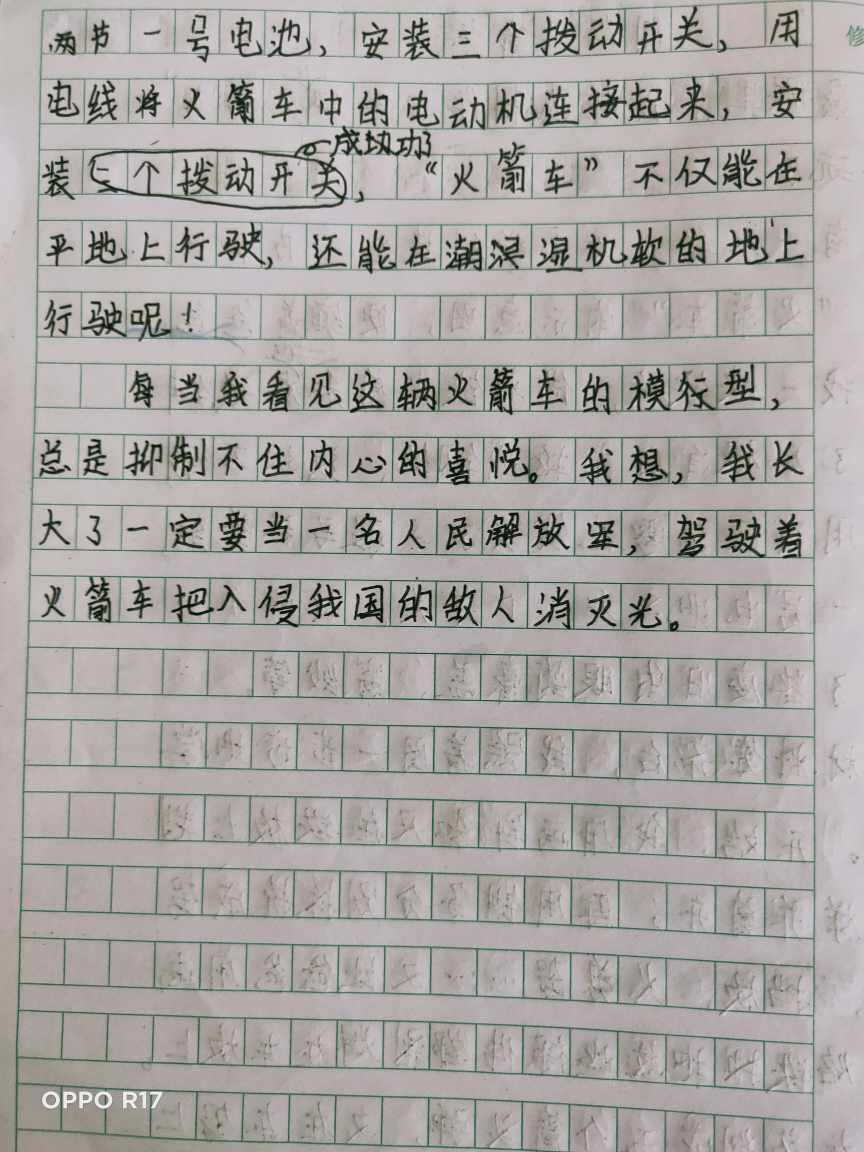 两节一号电池，安装三个拨动开关，用
电线将火箭车中的电动机连接起来，安
成功了
装三个拨动开关，“火箭车”不仅能在
平地上行驶，还能在潮湿机软的地上
行驶呢！
每当我看见这辆火箭车的模型，
总是抑制不住内心的喜悦。我想，我长
大了一定要当一名人民解放军，驾驶着
火箭车把入侵我国的敌人消灭光。
OPPO R17